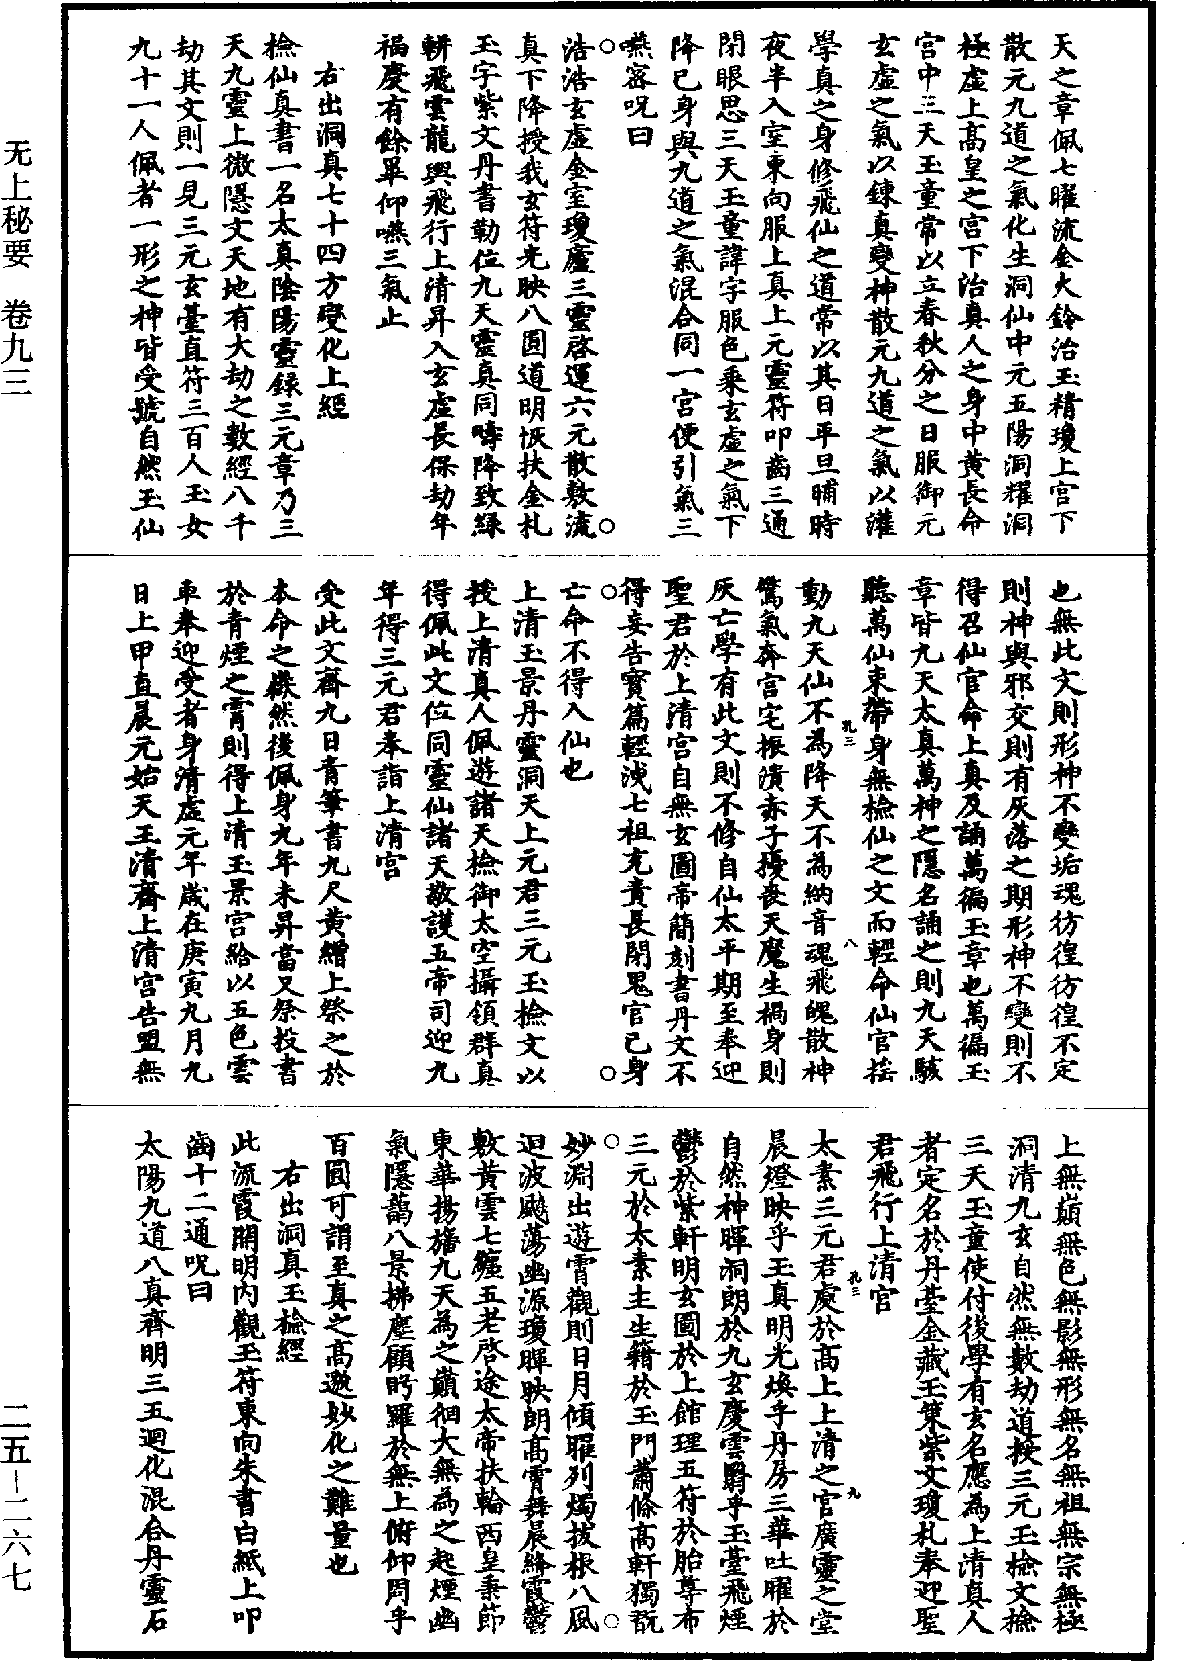 天之章佩七曜流金火鈴治玉精瓊上宮下
散元九道之氣化生洞仙中元五陽洞耀洞
極虛上高皇之宮下治真人之身中黃長命
宮中三天玉童常以立春秋分之日服御元
玄虛之氣以鍊真變神散元九道之氣以灌
學真之身修飛仙之道常以其日平旦晡時
夜半入室東向服上真上元靈符叩齒三通
閉眼思三天玉童諱字服色乘玄虛之氣下
降已身與九道之氣混合同一宮便引氣三
嚥密呪曰
浩浩玄虛金室瓊廬三靈啓運六元散敷流
真下降授我玄符光映八圓道明恢扶金札
玉字紫文丹書勒位九天靈真同疇降致綠
軿飛雲龍輿飛行上清昇入玄虛長保劫年
福慶有餘畢仰嚥三氣止
右出洞真七十四方變化上經
檢仙真書一名太真陰陽靈錄三元章乃三
天九靈上微隱文天地有大劫之數經八千
劫其文則一見三元玄臺直符三百人玉女
九十一人佩者一形之神皆受號自然玉仙
也無此文則形神不變垢魂彷徨彷徨不定
則神與邪交則有灰落之期形神不變則不
得召仙官命上真及誦萬徧玉章也萬徧玉
章皆九天太真萬神之隱名誦之則九天駭
聽萬仙束帶身無檢仙之文而輕命仙官搖
動九天仙不為降天不為納音魂飛魄散神
驚氣奔宮宅振潰赤子擾喪天魔生禍身則
灰亡學有此文則不修自仙太平期至奉迎
聖君於上清宮自無玄圖帝簡刻書丹文不
得妄告寶篇輕洩七祖充責長閉鬼官己身
亡命不得入仙也
上清玉景丹靈洞天上元君三元玉檢文以
授上清真人佩遊諸天檢御太空攝領群真
得佩此文位同靈仙諸天敬護五帝司迎九
年得三元君奉詣上清宮
受此文齋九日青筆書九尺黃繒上祭之於
本命之嶽然後佩身九年未昇當又祭投書
於青煙之霄則得上清玉景宮給以五色雲
車奉迎受者身清虛元年歲在庚寅九月九
日上甲直晨元始天王清齋上清宮告盟無
上無巔無色無影無形無名無祖無宗無極
洞清九玄自然無數劫道授三元玉檢文檢
三天玉童使付後學有玄名應為上清真人
者定名於丹臺金藏玉策紫文瓊札奉迎聖
君飛行上清宮
太素三元君處於高上上清之宮廣靈之堂
晨燈映乎玉真明光煥乎丹房三華吐曜於
自然神暉洞朗於九玄慶雲翳乎玉臺飛煙
鬱於紫軒明玄圖於上館理五符於胎尊布
三元於太素主生籍於玉門蕭條高軒獨翫
妙淵出遊霄觀則日月傾曜列燭拔根八風
迴波飈蕩幽源瓊暉映朗高霄舞晨絳霞鬱
敷黃雲七纏五老啓途太帝扶輪西皇秉節
東華揚旛九天為之巔徊大無為之起煙幽
氣隱藹八景拂塵顧眄羅於無上俯仰周乎
百圓可謂至真之高邈妙化之難量也
右出洞真玉檢經
此流霞開明內觀玉符東向朱書白紙上叩
齒十二通呪曰
太陽九道八真齊明三五迴化混合丹靈石
孔三
八
孔三
九
无上秘要 卷九三
二五－二六七